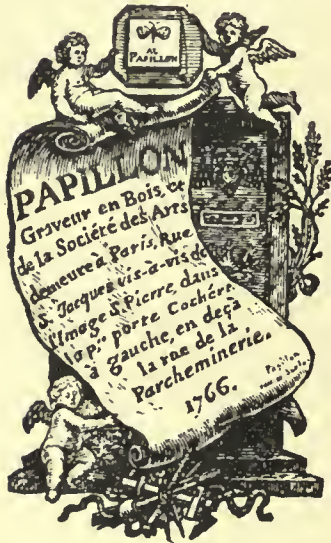 AL
PAPILLON
PAPILLON
Graveur en Bois, et
de la Société des Arts
demeure à Paris, Rue
S. Jacques vis-à-vis de
l'Image S. Pierre, dans
la p.re porte Cochére
à gauche, en deçà
la rue de la
Parcheminerie.
1766.
Papillon